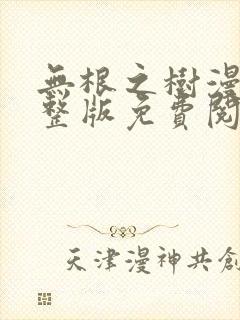 無根之樹漫
整版免費閱
天津漫神共創